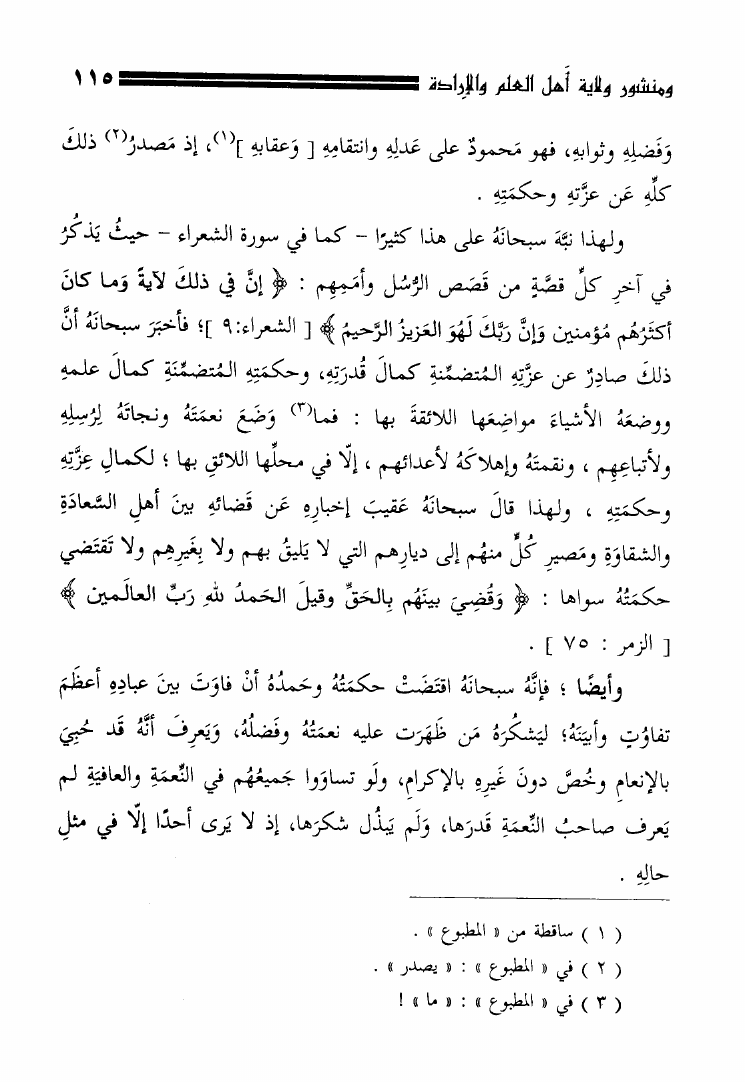 ومنشور ولاية أَهل العلم والإرادة ١١٥
وَفَضلِهِ وثوابهِ، فهو مَحمودٌ على عَدلِهِ وانتقامِهِ [ وَعقابهِ ](١)، إذ مَصدرُ(٢) ذلكَ
كلِّه عَن عزَّتهِ وحكمَتِهِ .
ولـهذا نبَّهَ سبحانَهُ على هذا كثيرًا – كما في سورة الشعراء – حيثُ يَذكُرُ
في آخرِ كلِّ قصَّةٍ من قَصَص الرُّسُل وأمَمِهِم : ﴿ إنَّ في ذلكَ لآيةً وَما كانَ
أكثَرُهُم مُؤمنين وَإنَّ رَبَّكَ لَهُوَ العَزيزُ الرَّحيمُ ﴾ [ الشعراء:٩ ]؛ فأخبَرَ سبحانَهُ أنَّ
ذلكَ صادِرٌ عن عزَّتِهِ المُتضمِّنةِ كمالَ قُدرَتِهِ، وحكمَتِهِ المُتضمِّنَةِ كمالَ علمهِ
ووضعَهُ الأشياءَ مواضِعَها اللائقةَ بها : فما(٣) وَضَعَ نعمَتَهُ ونجاتَهُ لِرُسلِهِ
ولأتباعِهِم ، ونقمتَهُ وإهلاكَهُ لأعدائهم ، إلّا في محلِّها اللائقِ بها ؛ لكمالِ عِزَّتِهِ
وحكمَتِهِ ، ولـهذا قالَ سبحانَهُ عَقيبَ إخبارِهِ عَن قَضائهِ بينَ أهلِ السَّعادَةِ
والشقاوَةِ ومَصيرِ كُلٍّ منهُم إلى ديارِهم التي لا يَليقُ بهم ولا بِغَيرِهِم ولا تَقتَضي
حكمَتُهُ سواها : ﴿ وَقُضيَ بينَهُم بِالحَقِّ وقيلَ الحَمدُ للهِ رَبِّ العالَمين ﴾
[ الزمر : ٧٥ ] .
وأيضًا ؛ فإنَّهُ سبحانَهُ اقتَضَتْ حكمَتُهُ وحَمدُهُ أنْ فاوَتَ بينَ عبادِهِ أعظَمَ
تفاوُتٍ وأبيَنَهُ؛ ليَشكُرَهُ مَن ظَهَرَت عليه نعمَتُهُ وفَضلُهُ، وَيَعرِفَ أنَّهُ قَد حُبِيَ
بالإنعامِ وخُصَّ دونَ غَيرِهِ بالإكرامِ، ولَو تساوَوا جَميعُهُم في النِّعمَةِ والعافيَةِ لـم
يَعرف صاحبُ النِّعمَةِ قَدرَها، وَلَم يَبذُل شكرَها، إذ لا يَرى أحدًا إلّا في مثلِ
حالِهِ .
( ١ ) ساقطة من « المطبوع » .
( ٢ ) في « المطبوع » : « يصدر » .
( ٣ ) في « المطبوع » : « ما » !